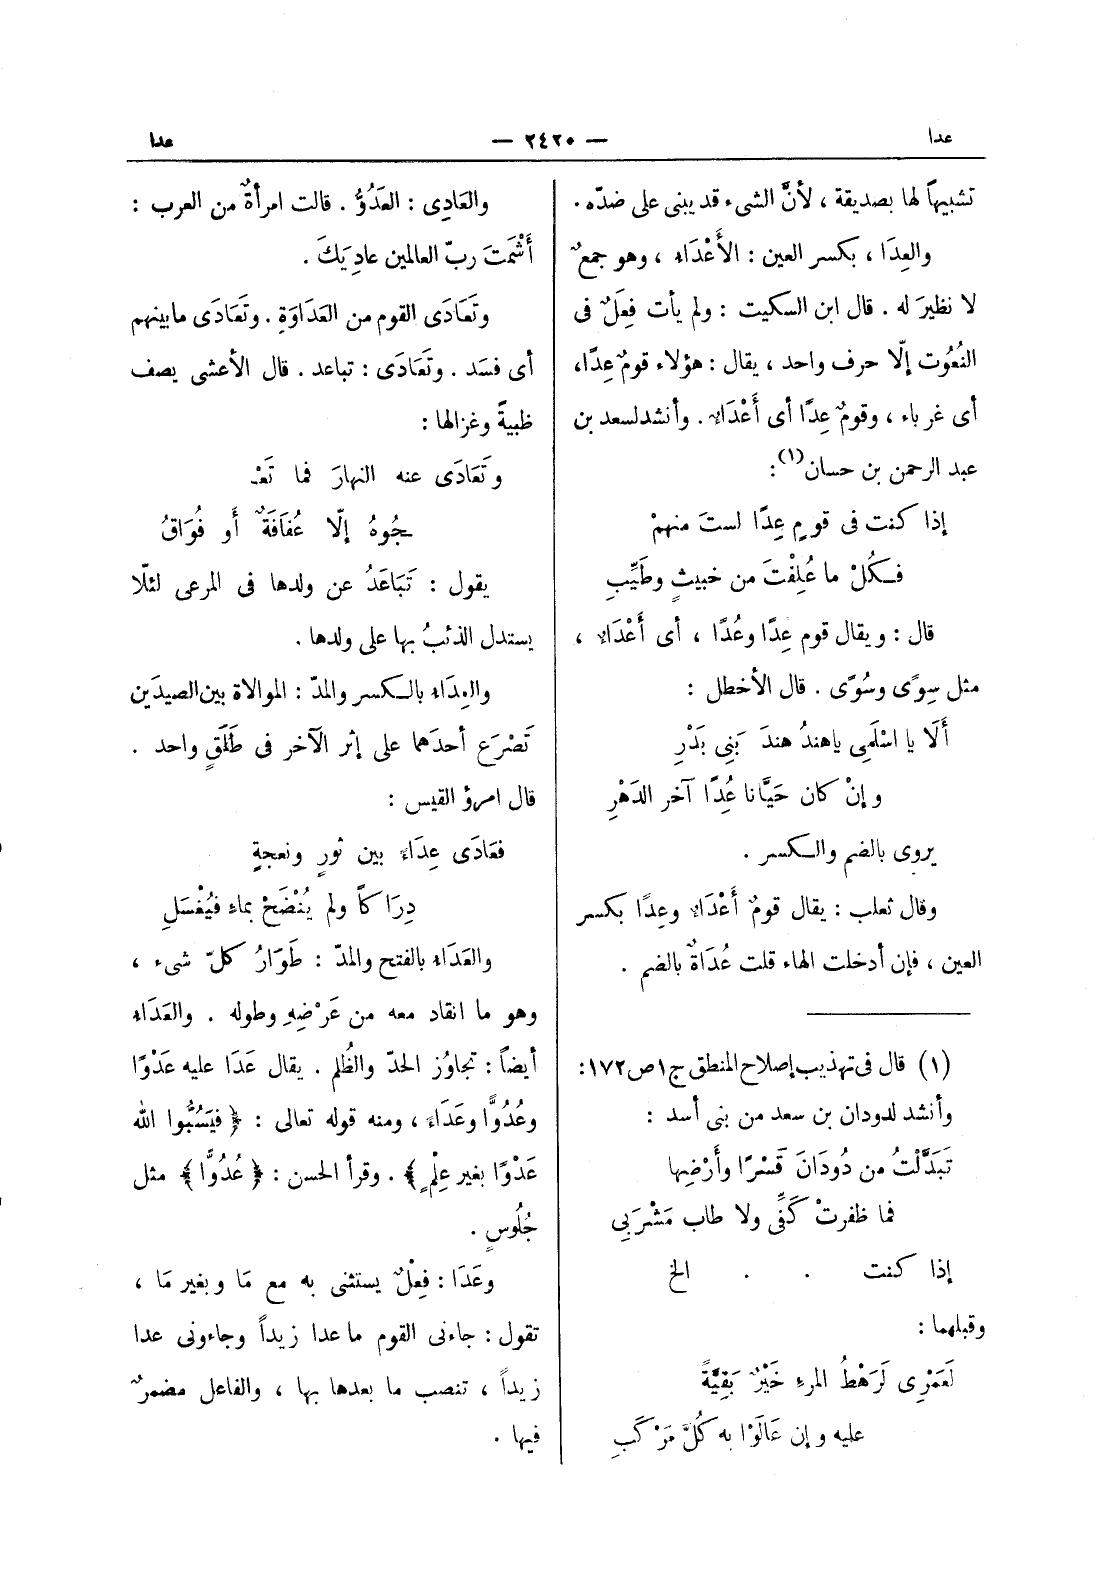 عدا
— ٢٤٢٠ —
عدا
تشبيهاً لها بصديقة ، لأنَّ الشىء قد يبنى على ضدّه .
والعِدَا ، بكسر العين : الأَعْدَاء ، وهو جمعٌ
لا نظيرَ له . قال ابن السكيت : ولم يأت فِعَلٌ فى
النُعُوت إلّا حرف واحد ، يقال : هؤلاء قومٌ عِدًا،
أى غرباء ، وقومٌ عِدًا أى أَعْدَاء . وأنشد لسعد بن
عبد الرحمن بن حسان(١):
إذا كنت فى قومٍ عِدًا لستَ منهمْ
فكُلْ ما عُلِفْتَ من خبيثٍ وطَيِّبِ
قال : ويقال قوم عِدًا وعُدًا ، أى أَعْدَاء ،
مثل سِوًى وسُوًى . قال الأخطل :
أَلَا يا اسْلَمِى ياهندُ هندَ بَنِى بَدْرِ
وإنْ كان حَيَّانا عُدًا آخر الدَهْرِ
يروى بالضم والكسر .
وقال ثعلب : يقال قومٌ أَعْدَاء وعِدًا بكسر
العين ، فإن أدخلت الهاء قلت عُدَاةٌ بالضم .
(١) قال فى تهذيب إصلاح المنطق ج١ ص١٧٢:
وأنشد لدودان بن سعد من بنى أسد :
تَبَدَّلْتُ من دُودَانَ قَسْرًا وأَرْضِها
فما ظفرتْ كَفِّى ولا طاب مَشْرَبِى
إذا كنت . . الخ
وقبلهما :
لَعَمْرِى لَرَهْطُ المرءِ خَيْرٌ بَقِيَّةً
عليه وإن عَالَوْا به كُلَّ مَرْكَبِ
والعَادِى : العَدُوُّ . قالت امرأةٌ من العرب :
أَشْمَتَ ربّ العالمين عادِيَكَ .
وتَعَادَى القوم من العَدَاوَةِ . وتَعَادَى مابينهم
أى فسَد . وتَعَادَى : تباعد . قال الأعشى يصف
ظبيةً وغزالها :
وتَعَادَى عنه النهارَ فما تَعْـ
ـجُوهُ إلّا عُفَافَةٌ أو فُوَاقُ
يقول : تَبَاعَدُ عن ولدها فى المرعى لئلّا
يستدل الذئبُ بها على ولدها .
والعِدَاء بالكسر والمدّ : الموالاة بين الصيدَين
تَصْرَع أحدَهما على إثر الآخر فى طَلَقٍ واحد .
قال امرؤ القيس :
فعَادَى عِدَاءً بين ثورٍ ونعجةٍ
دِرَاكاً ولم يُنْضَحْ بماء فيُغْسَلِ
والعَدَاء بالفتح والمدّ : طَوَارُ كلّ شىء ،
وهو ما انقاد معه من عَرْضِهِ وطوله . والعَدَاء
أيضاً : تجاوُز الحدّ والظُلم . يقال عَدَا عليه عَدْوًا
وعُدُوًّا وعَدَاءً ، ومنه قوله تعالى : ﴿ فيَسُبُّوا الله
عَدْوًا بغير عِلْمٍ ﴾ . وقرأ الحسن : ﴿ عُدُوًّا ﴾ مثل
جُلُوسٍ .
وعَدَا : فِعْلٌ يستثنى به مع مَا وبغير مَا ،
تقول : جاءنى القوم ماعدا زيداً وجاءونى عدا
زيداً ، تنصب ما بعدها بها ، والفاعل مضمرٌ
فيها .